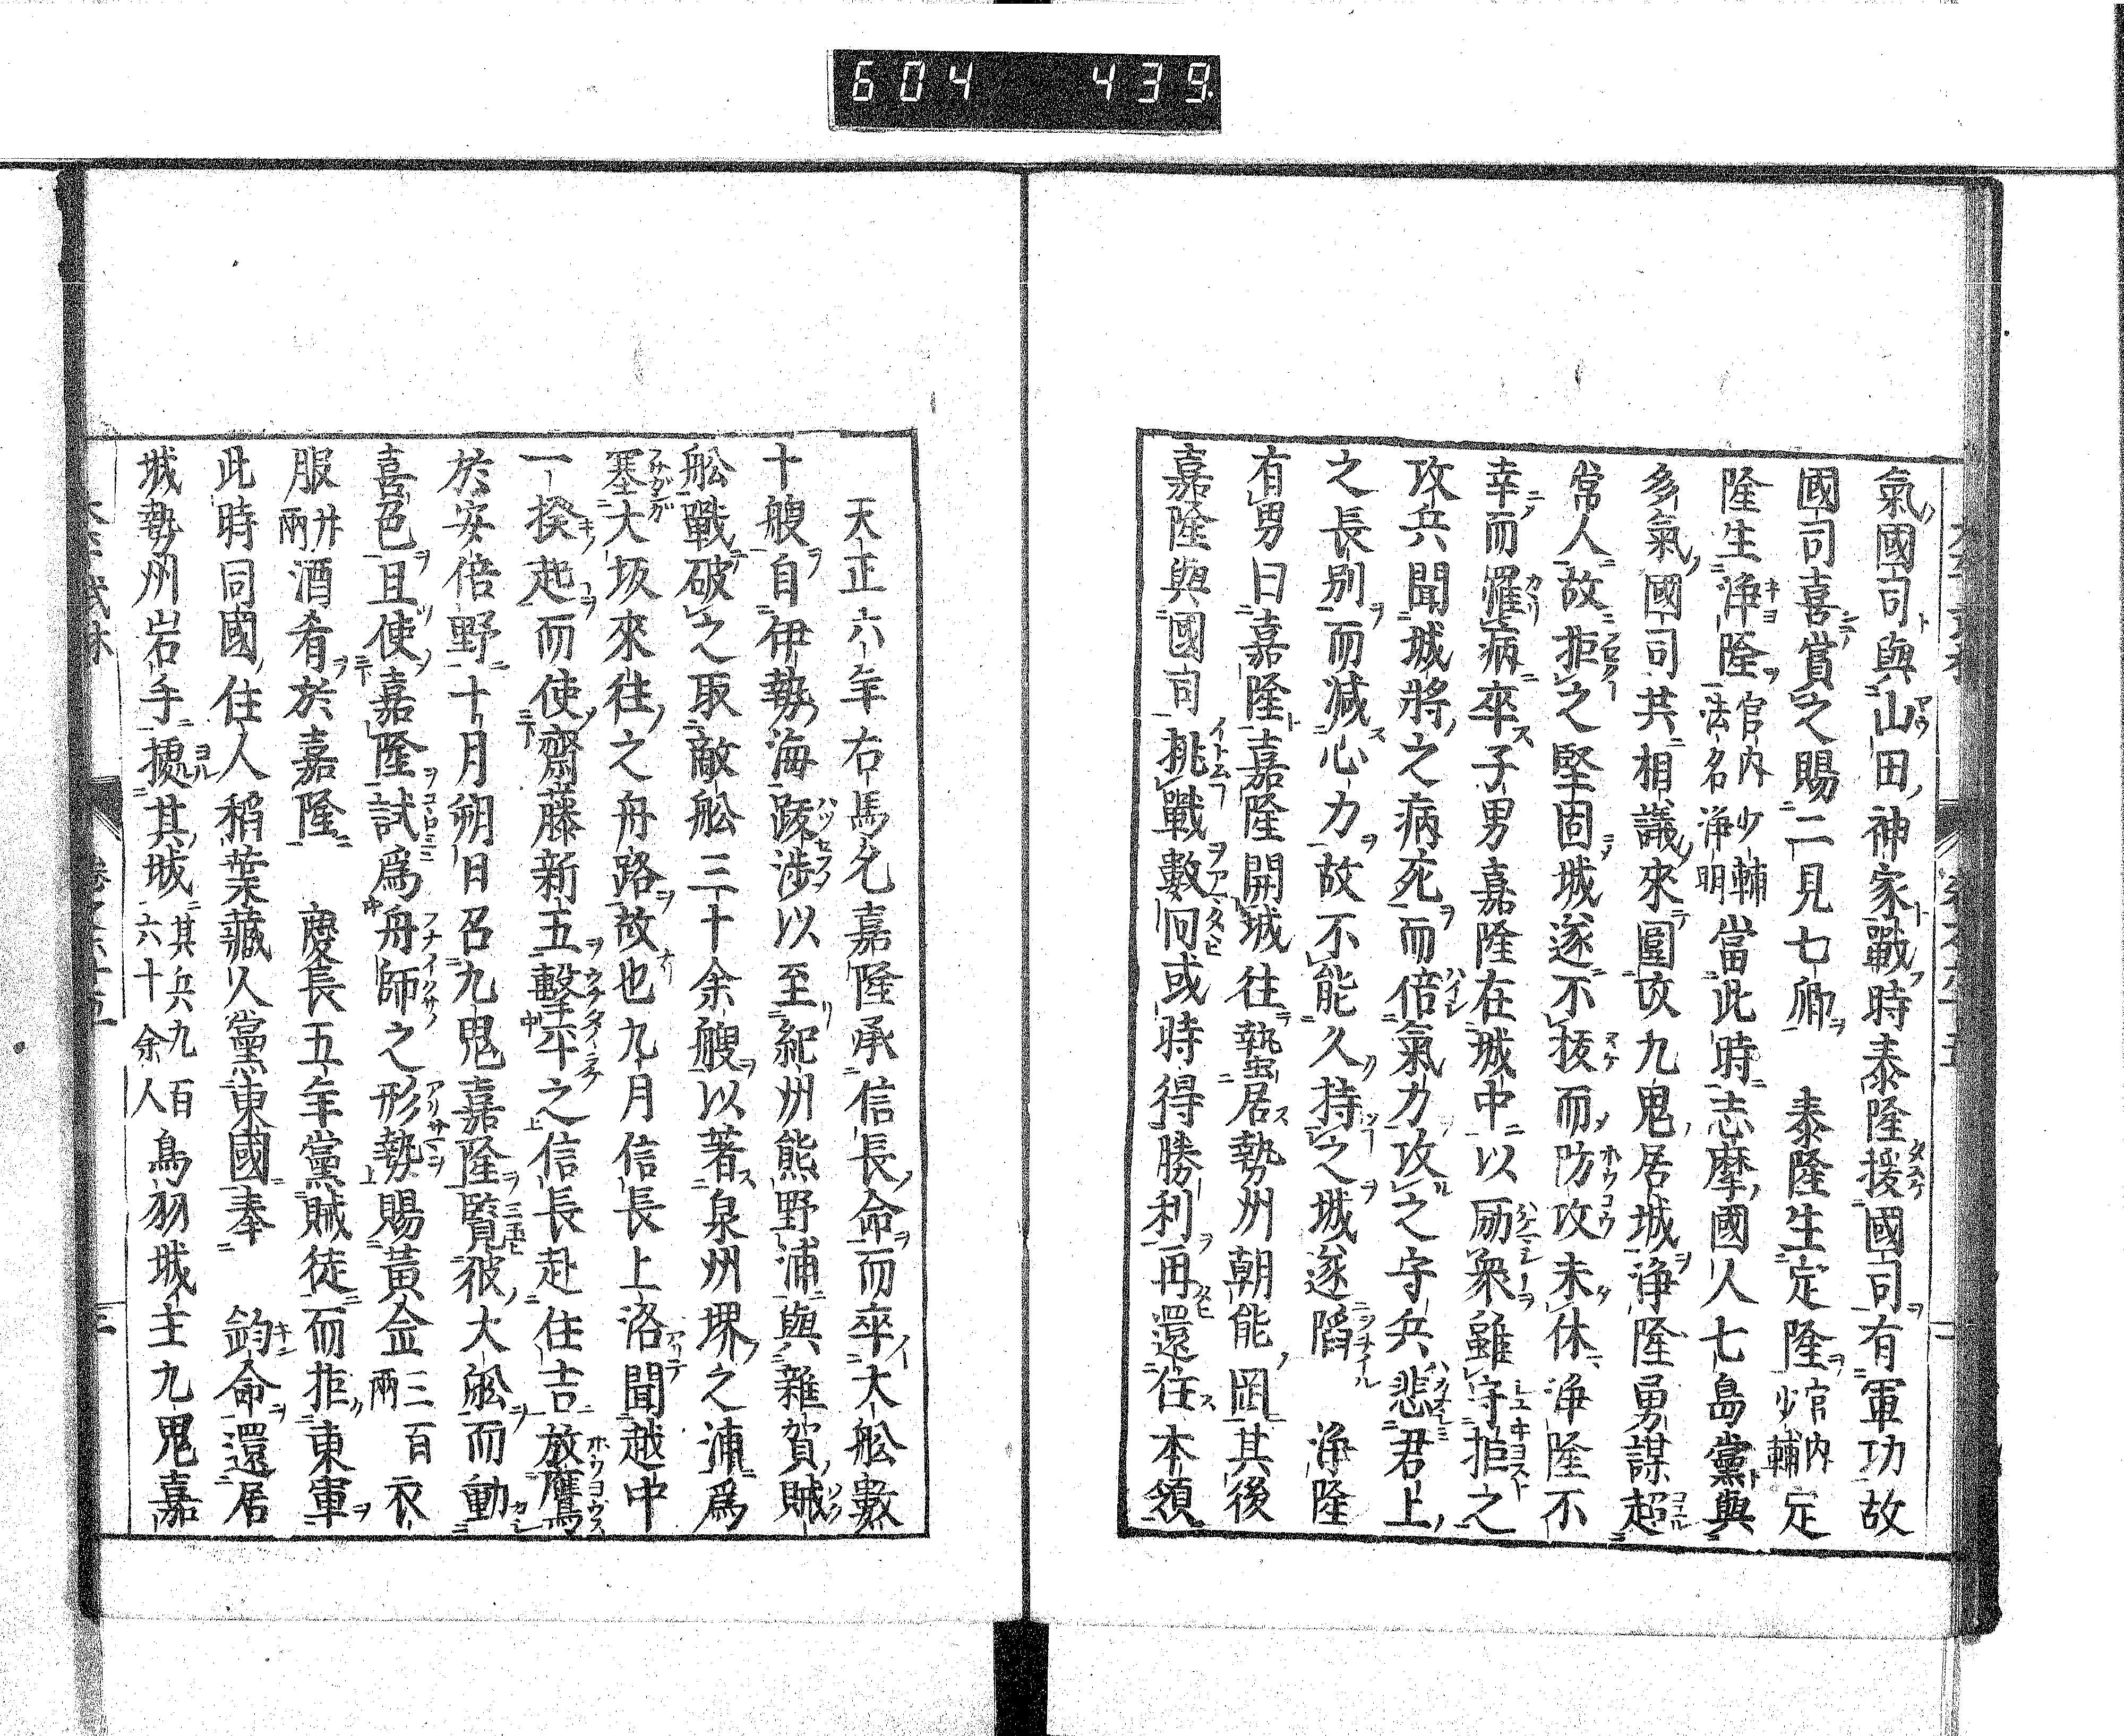 604 439
氣國司與山田神家戰時泰隆援國司有軍功故
國司喜賞之賜二見七鄉 泰隆生定隆宮内少輔定
隆生淨隆宮内少輔法名淨明當此時志摩國人七島黨與
多氣國司共相議來圍攻九鬼居城淨隆勇謀超
常人故拒之堅固城遂不拔而防攻未休淨隆不
幸而罹病卒子男嘉隆在城中以励衆雖守拒之
攻兵聞城將之病死而倍氣力攻之守兵悲君上
之長別而減心力故不能久持之城遂陷 淨隆
有男曰嘉隆嘉隆開城往蟄居勢州朝熊岡其後
嘉隆與國司挑戰數回或時得勝利再還住本領
天正六年右馬允嘉隆承信長命而卒大舩數
十艘自伊勢海跋涉以至紀州熊野浦與雜賀賊
舩戰破之取敵舩三十余艘以著泉州堺之浦爲
塞大坂來往之舟路故也九月信長上洛聞越中
一揆起而使齋藤新五擊平之信長赴住吉放鷹
於安倍野十月朔日召九鬼嘉隆覧彼大舩而動
喜色且使嘉隆試爲舟師之形勢賜黃金三百兩衣
服廿兩酒肴於嘉隆 慶長五年黨賊徒而拒東軍
此時同國住人稻葉藏人黨東國奉 鈞命還居
城勢州岩手據其城其兵九百六十余人鳥羽城主九鬼嘉